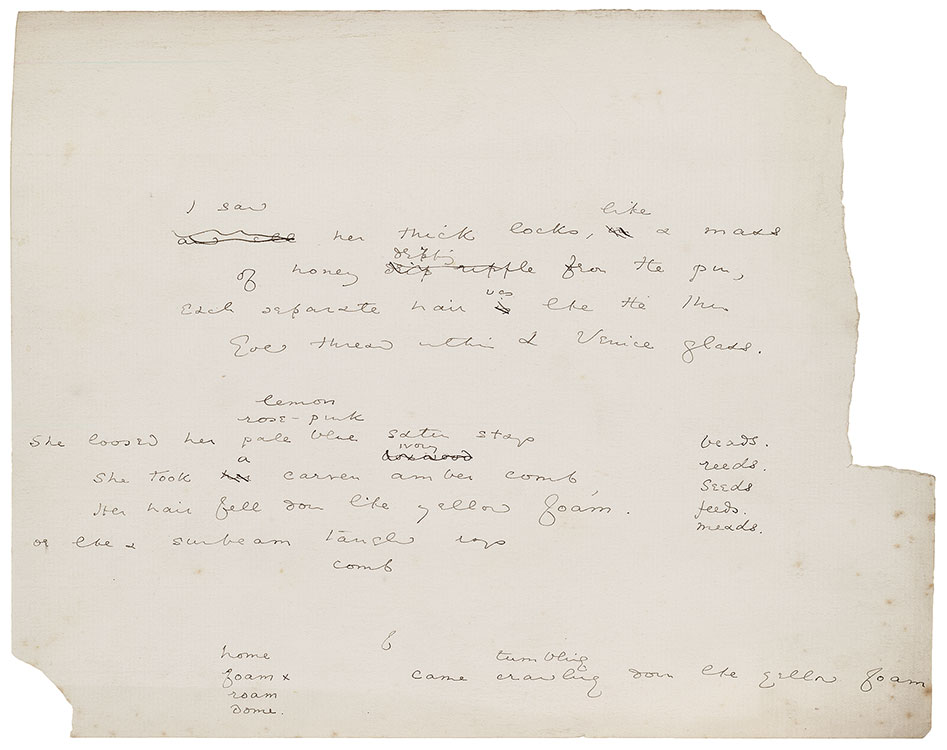 I saw like
her thick locks, a mass
dripping
of honey drip ripple from the pin,
was
Each separate hair is like the thin
Gold thread within a Venice glass.
lemon
rose-pink
She loosed her pale blue satin stays beads.
ivory
a boxwood reeds.
She took carven amber comb, seeds
Her hair fell down like yellow foam. feeds.
meads.
or like a sunbeam's tangled rays
comb
home tumbling
foam x came crawling down like yellow foam
roam
dome.